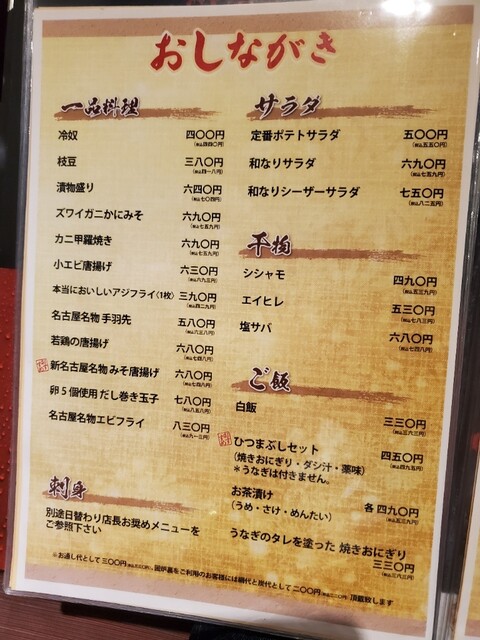 おしながき
一品料理
冷奴 四〇〇円
(税込四四〇円)
枝豆 三八〇円
(税込四一八円)
漬物盛り 六四〇円
(税込七〇四円)
ズワイガニかにみそ 六九〇円
(税込七五九円)
カニ甲羅焼き 六九〇円
(税込七五九円)
小エビ唐揚げ 六三〇円
(税込六九三円)
本当においしいアジフライ(1枚) 三九〇円
(税込四二九円)
名古屋名物 手羽先 五八〇円
(税込六三八円)
若鶏の唐揚げ 六八〇円
(税込七四八円)
新名古屋名物 みそ唐揚げ 六八〇円
(税込七四八円)
卵5個使用 だし巻き玉子 七八〇円
(税込八五八円)
名古屋名物エビフライ 八三〇円
(税込九一三円)
刺身
別途日替わり店長お奨めメニューを
ご参照下さい
サラダ
定番ポテトサラダ 五〇〇円
(税込五五〇円)
和なりサラダ 六九〇円
(税込七五九円)
和なりシーザーサラダ 七五〇円
(税込八二五円)
干物
シシャモ 四九〇円
エイヒレ 五三〇円
塩サバ 六八〇円
(税込七四八円)
ご飯
白飯 三三〇円
(税込三六三円)
ひつまぶしセット 四五〇円
(税込四九五円)
(焼きおにぎり・ダシ汁・薬味)
*うなぎは付きません。
お茶漬け 各 四九〇円
(税込五三九円)
(うめ・さけ・めんたい)
うなぎのタレを塗った 焼きおにぎり
三三〇円
(税込三六三円)
※お通し代として 三〇〇円(税込三三〇円)、囲炉裏をご利用のお客様には網代と炭代として二〇〇円(税込二二〇円)頂戴致します